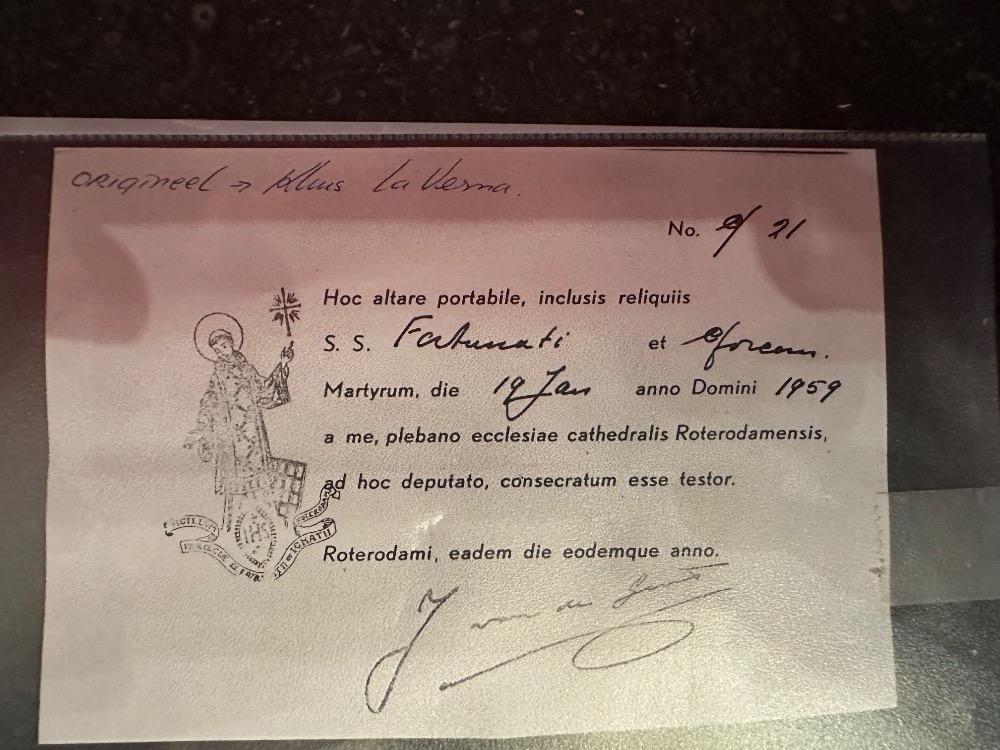 ORIGINEEL → Klus La Verna.
No. 9/ 21
Hoc altare portabile, inclusis reliquiis
S. S. Fortunati et
Martyrum, die 19 Jan anno Domini 1959
a me, plebano ecclesiae cathedralis Roterodamensis,
ad hoc deputato, consecratum esse testor.
SIGILLUM
IHS
IGNATII
Roterodami, eadem die eodemque anno.
J van de